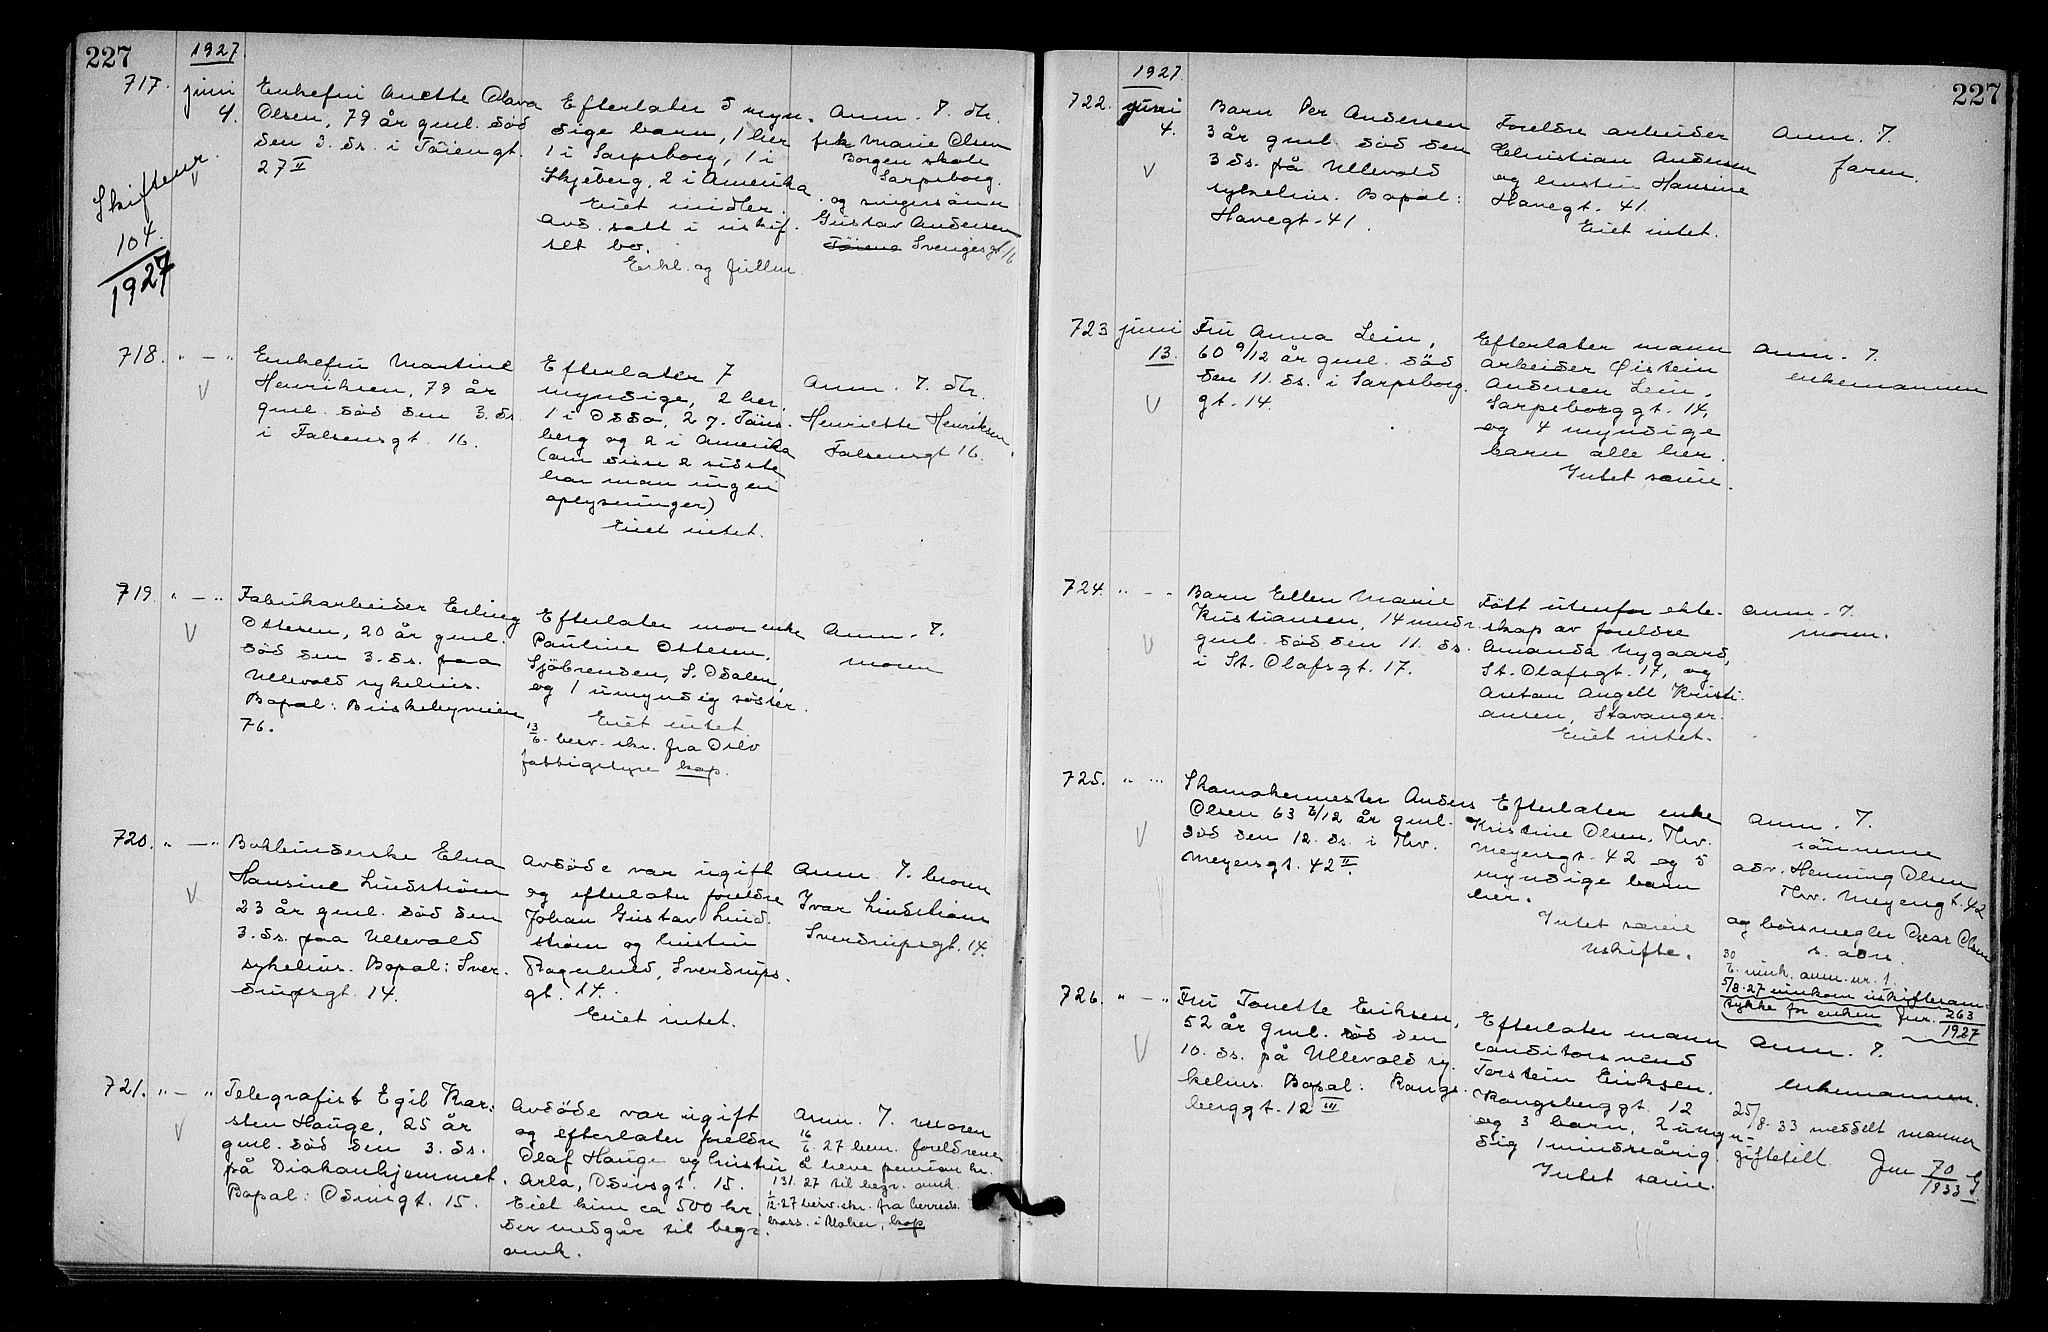 227
1927.
717. juni 4.
Enkefru Anette Olava
Olsen, 79 år gml. död
den 3. ds. i Töiengt.
27 II
Efterlater 5 myn-
dige barn, 1 her
1 i Sarpsborg, 1 i
Skjeberg, 2 i Amerika
Eiet midler.
Avd. satt i uskif-
tet bo.
Erkl. og fullm.
Anm. 7. dtr.
frk Marie Olsen
Borgen skole
Sarpsborg.
og svigersönn
Gustav Andersen
Töiena Svenges gt. 16
Skiftenr.
104
1927
718. " — "
Enkefru Martine
Henriksen, 79 år
gml. död den 3. ds.
i Falsensgt. 16.
Efterlater 7
myndige, 2 her.
1 i Odda, 2 i Töns-
berg og 2 i Amerika
(om disse 2 sidste
har man ingen
oplysninger)
Eiet intet.
Anm. 7. dtr.
Henriette Henriksen,
Falsensgt 16.
719. " — "
Fabrikarbeider Erling
Ottesen, 20 år gml.
död den 3. ds. paa
Ullevold sykehus.
Bopal: Briskebyveien
76.
Efterlater mor enke
Pauline Ottesen,
Sjöbrenden, S. Odalen,
og 1 umyndig söster.
Eiet intet
13/6. berv. skr. fra Oslo
fattigstyre kop.
Anm. 7.
moren
720. " — "
Bokbinderske Elna
Hansine Lindstrøm
23 år gml. död den
3. ds. paa Ullevold
sykehus. Bopal: Sver-
drupsgt. 14.
Avdöde var ugift
og efterlater foreldre
Johan Gustav Lind-
strøm og hustru
Ragnhild, Sverdrups-
gt. 14.
Eiet intet.
Anm. 7. broren
Ivar Lindstrøm
Sverdrupsgt. 14.
721. " — "
Telegrafist Egil Kar-
sten Hauge, 25 år
gml. död den 3. ds.
på Diakonhjemmet.
Bopal: Odinsgt. 15.
Avdöde var ugift
og efterlater foreldre
Olaf Hauge og hustru
Arla, Odinsgt. 15.
Eiet kun ca 500 kr.
der medgår til begr.
omk.
Anm. 7. moren
16/6 27 bem. foreldrene
å heve pension kr.
131.27 til begr. omk.
27 berv. skr. fra herreds-
kass. i Aker, kop
227
1927.
722. juni 4.
Barn Per Andersen
3 år gml. död den
3 ds. på Ullevold
sykehus. Bopal:
Havegt. 41.
Foreldre arbeider
Christian Andersen
og hustru Hansine
Havegt. 41.
Eiet intet.
Anm. 7.
faren.
723 juni 13.
Fru Anna Lein,
60 9/12 år gml. död
den 11. ds. i Sarpsborg-
gt. 14.
Efterlater mann
arbeider Øistein
Andersen Lein,
Sarpsborggt. 14,
og 4 myndige
barn alle her.
Intet særeie.
Anm. 7.
enkemannen
724. " — "
Barn Ellen Marie
Kristiansen, 14 mndr.
gml. död den 11. ds.
i St. Olafsgt. 17.
Fött utenfor ekte-
skap av foreldre
Amanda Nygaard,
St. Olafsgt. 17, og
Anton Angell Kristi-
ansen, Stavanger.
Eiet intet.
Anm. 7.
moren.
725. " — "
Skomakermester Anders
Olsen 63 3/12 år gml.
död den 12. ds. i Thv.
Meyersgt. 42 II.
Efterlater enke
Kristine Olsen, Thv.
Meyersgt. 42 og 5
myndige barn
her.
Intet særeie
Uskifte.
Anm. 7.
sönnene
adv. Henning Olsen
Thv. Meyersgt. 42
og börsmegler Oscar Olsen
s. adr.
30/6. innk. anm. nr. 1.
5/8.27 innkom uskifteram-
stykke for enken Jnr. 263
1927
726. " — "
Fru Tonette Eriksen,
52 år gml. död den
10. ds. på Ullevold sy-
kehus. Bopal: Kongs-
berggt. 12 III
Efterlater mann
conditorsvend
Torstein Eriksen.
Kongsberggt. 12
og 3 barn, 2 umyn-
dig 1 mindreårig.
Intet særeie.
Anm. 7.
enkemannen.
25/8-33 meddelt mannen
giftetill. Jnr 70
1933